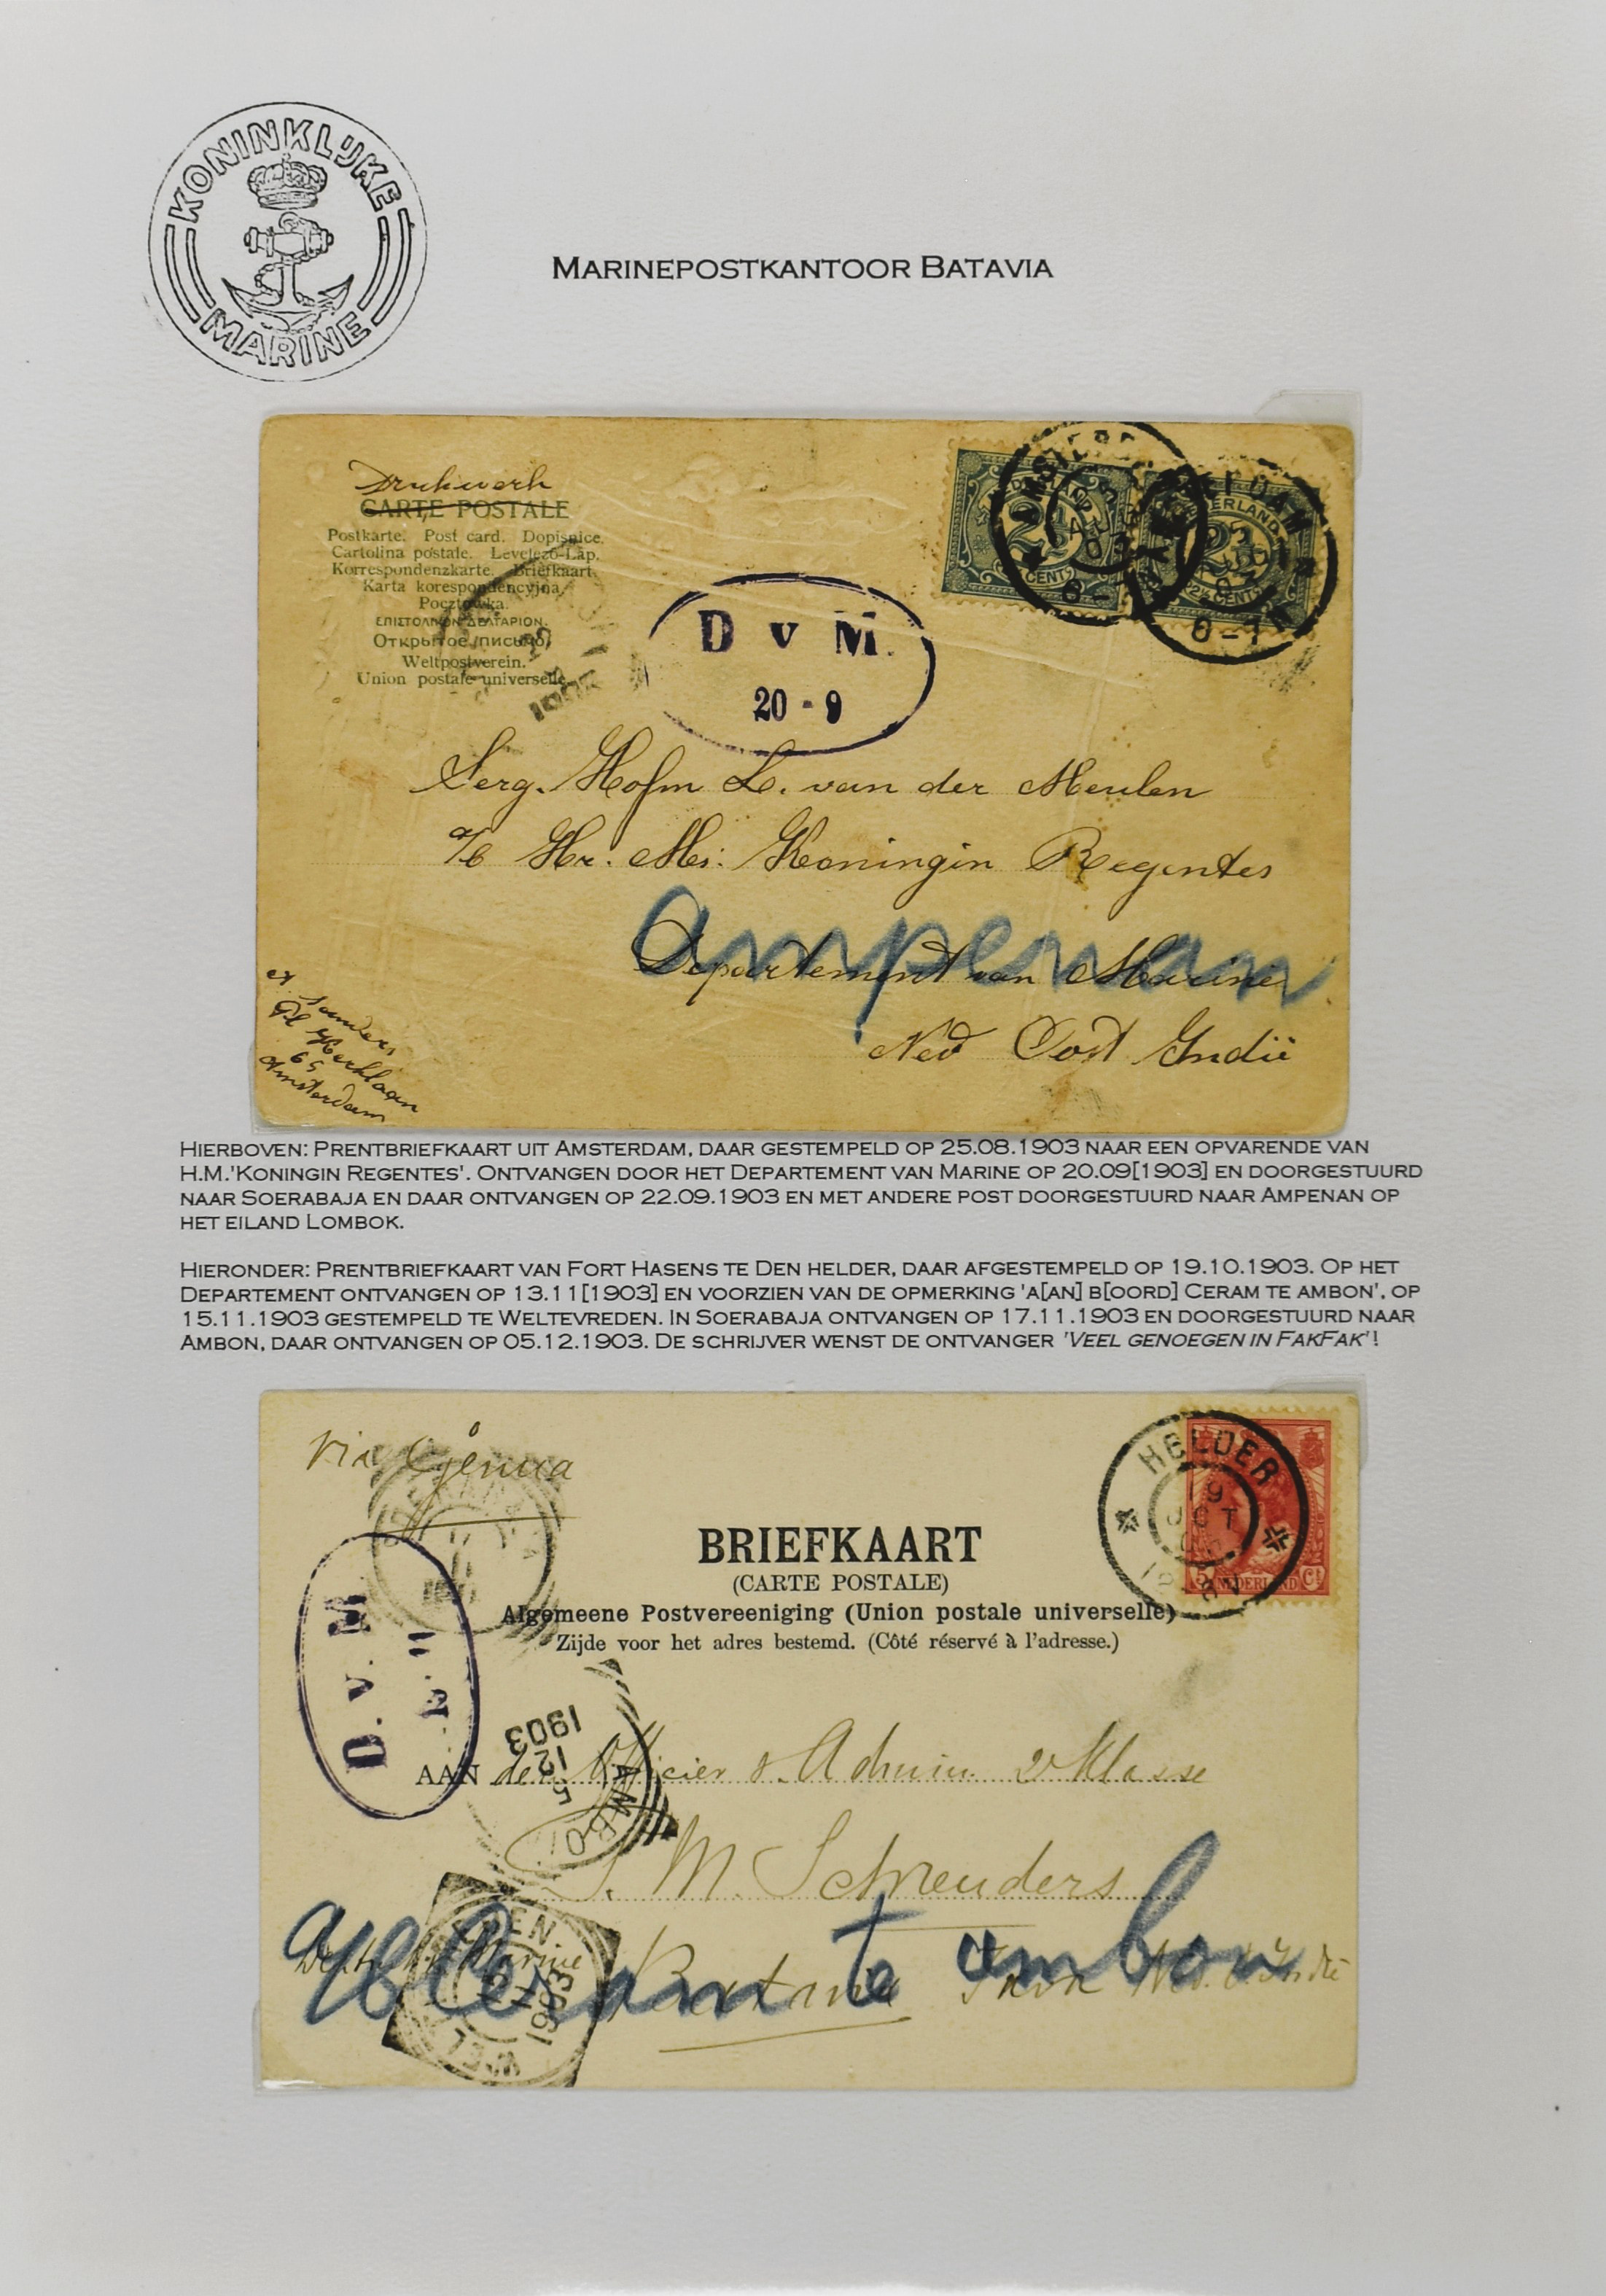 KONINKLIJKE
MARINE
MARINEPOSTKANTOOR BATAVIA
Drukwerk
CARTE POSTALE
Postkarte. Post card. Dopisnice.
Cartolina postale. Levelező-Lap.
Korrespondenzkarte. Briefkaart.
Karta korespondencyjna.
Pocztówka.
ΕΠΙΣΤΟΛΙΚΟΝ ΔΕΛΤΑΡΙΟΝ.
Открытое письмо.
Weltpostverein.
Union postale universelle.
AMSTERDAM
NEDERLAND
2½ CENT
D v M.
20 - 9
Serg. Hofm L. van der Meulen
a/b Hr. Ms: Koningin Regentes
Ampenan
Departement van Marine
Ned Oost Indië
Sanders
Pl Kerklaan
65
Amsterdam
HIERBOVEN: PRENTBRIEFKAART UIT AMSTERDAM, DAAR GESTEMPELD OP 25.08.1903 NAAR EEN OPVARENDE VAN
H.M.'KONINGIN REGENTES'. ONTVANGEN DOOR HET DEPARTEMENT VAN MARINE OP 20.09[1903] EN DOORGESTUURD
NAAR SOERABAJA EN DAAR ONTVANGEN OP 22.09.1903 EN MET ANDERE POST DOORGESTUURD NAAR AMPENAN OP
HET EILAND LOMBOK.
HIERONDER: PRENTBRIEFKAART VAN FORT HASENS TE DEN HELDER, DAAR AFGESTEMPELD OP 19.10.1903. OP HET
DEPARTEMENT ONTVANGEN OP 13.11[1903] EN VOORZIEN VAN DE OPMERKING 'A[AN] B[OORD] CERAM TE AMBON', OP
15.11.1903 GESTEMPELD TE WELTEVREDEN. IN SOERABAJA ONTVANGEN OP 17.11.1903 EN DOORGESTUURD NAAR
AMBON, DAAR ONTVANGEN OP 05.12.1903. DE SCHRIJVER WENST DE ONTVANGER 'VEEL GENOEGEN IN FAKFAK'!
Via Genua
HELDER
19 OCT
5 NEDERLAND Ct
BRIEFKAART
(CARTE POSTALE)
Algemeene Postvereeniging (Union postale universelle)
Zijde voor het adres bestemd. (Côté réservé à l'adresse.)
D. v. M.
AMBON
5 12 1903
AAN den Officier v. Admin. 2e Klasse
J. M. Schreuders
a/b Ceram te ambon
Batavia Java Ned. O. Indië
1903